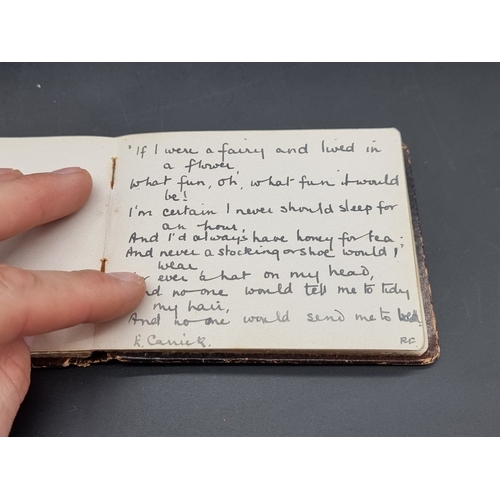 "If I were a fairy and lived in
a flower
What fun, oh, what fun it would
be!
I'm certain I never should sleep for
an hour,
And I'd always have honey for tea.
And never a stocking or shoe would I
wear
ever a hat on my head,
And no one would tell me to tidy
my hair,
And no one would send me to bed.
R. Carrick.
RC.